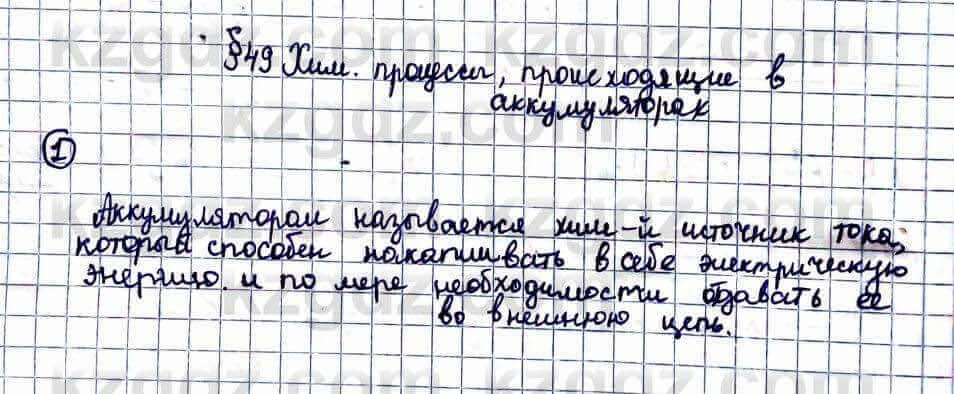 kzgdz.com kzgdz.com
§49 Хим. процессы, происходящие в
аккумуляторах
kzgdz.com
1
Аккумулятором называется хим-й источник тока,
который способен накапливать в себе электрическую
энергию и по мере необходимости отдавать её
во внешнюю цепь.